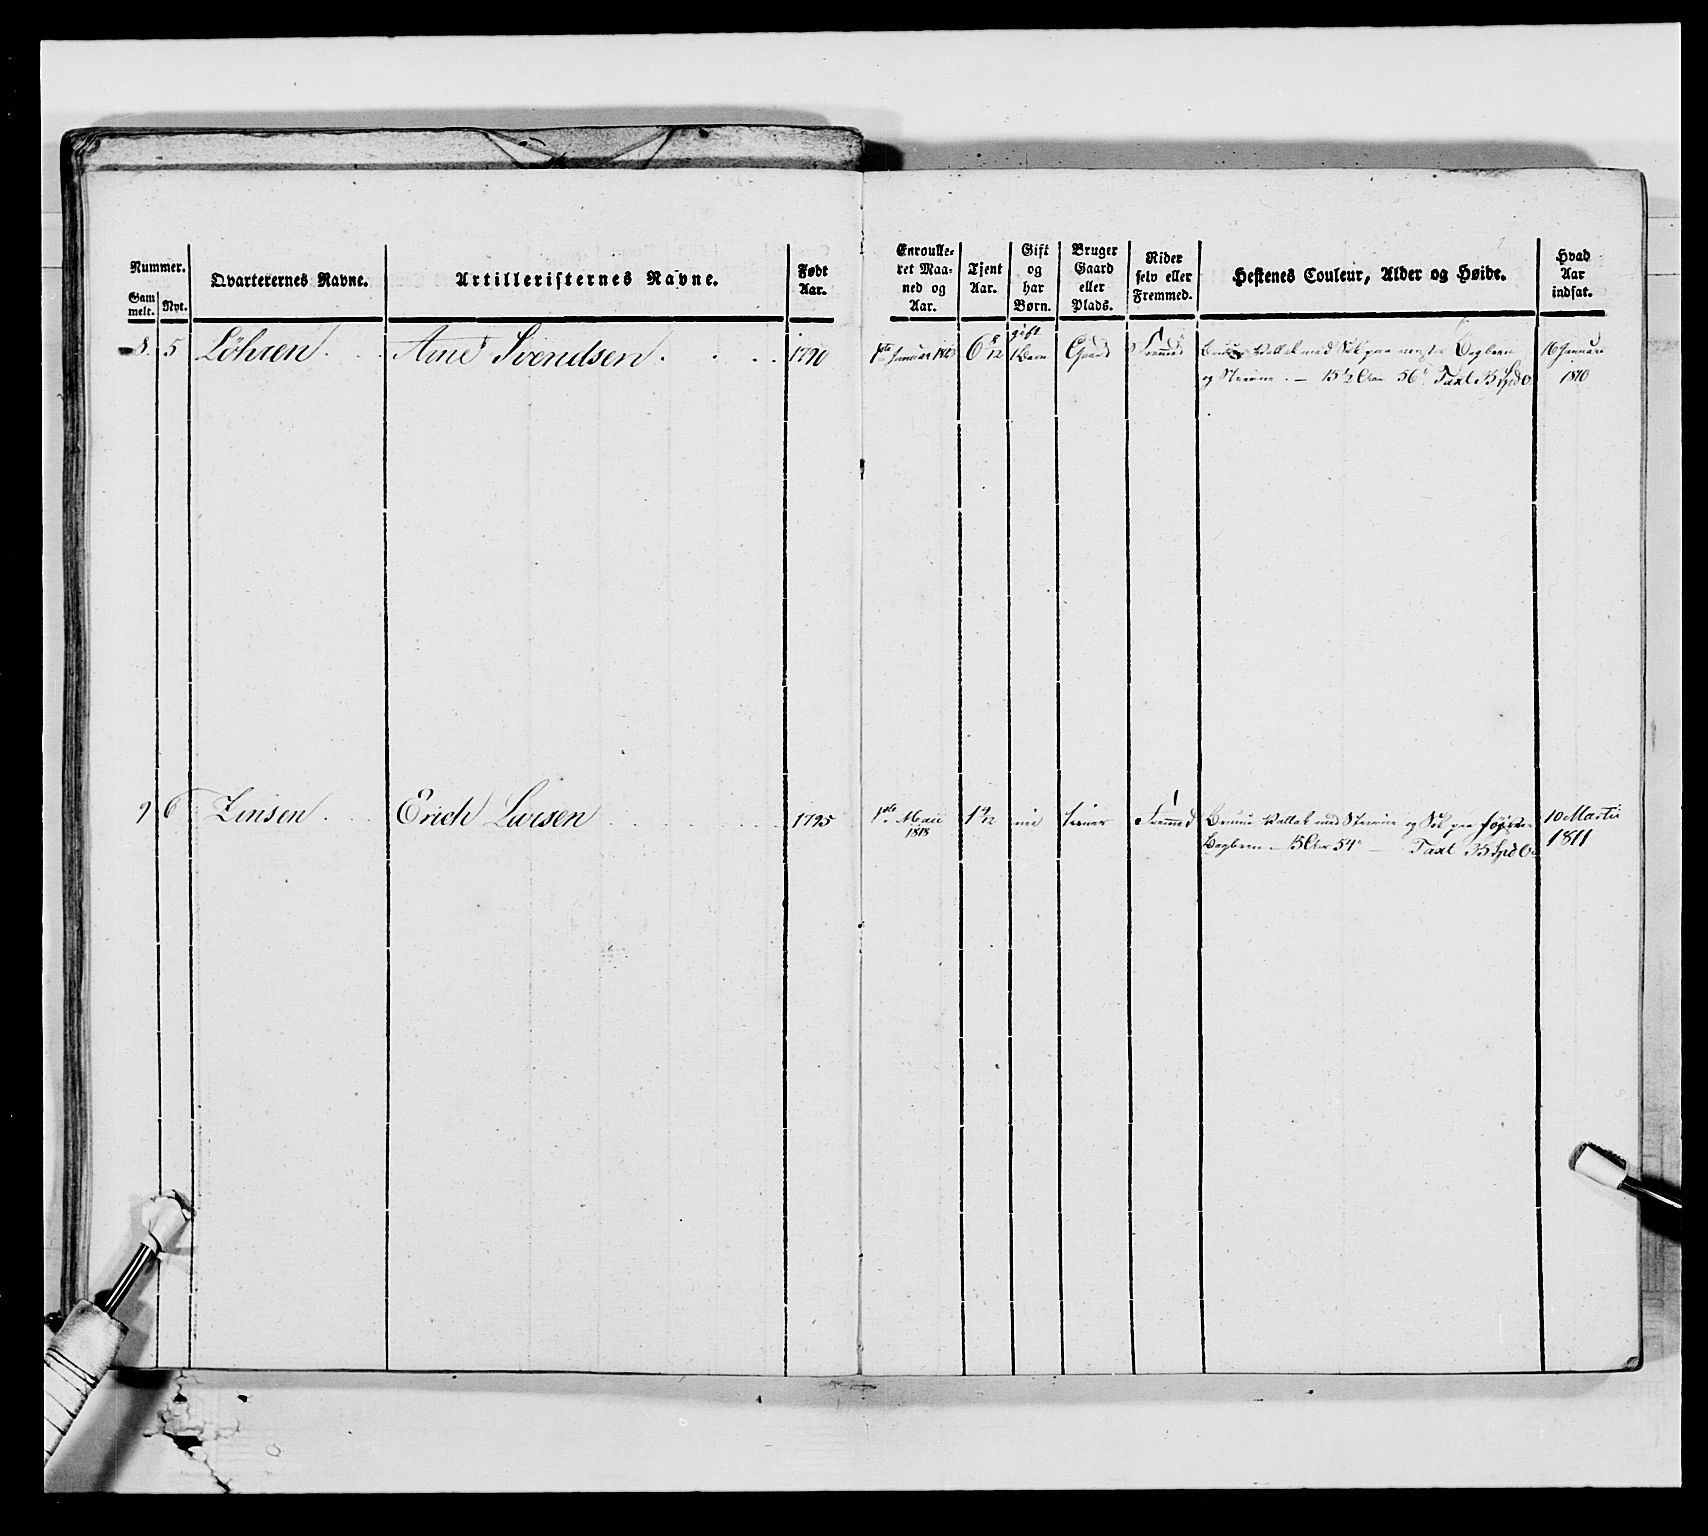 Nummer.
Gam
melt.
Nyt.
Qvarterernes Navne.
Artilleristernes Navne.
Født
Aar.
Enroulle-
ret Maa-
ned og
Aar.
Tjent
Aar.
Gift
og
har
Børn.
Bruger
Gaard
eller
Plads.
Rider
selv eller
Fremmed.
Hestenes Couleur, Alder og Høide.
Hvad
Aar
indsat.
8. 5 Löhren Arne Svendsen 1790 1ste Januar 6 8/12 gift
1 Barn Gaard Fremmed Vallak med Sol paa venstre Bagbeen 16 Januari
og Stierne. — 15 1/2 Aar 56" Taxt 35 Spd 1810
9 6 Zinsen Erich Larsen 1795 1ste Maii
1818
1 4/12 nei tiener Fremmed Bruun Vallak med Stierne og Sok paa høire 10 Martii
Bagbeen — 15 Aar 54" — Taxt 35 Spd 1811